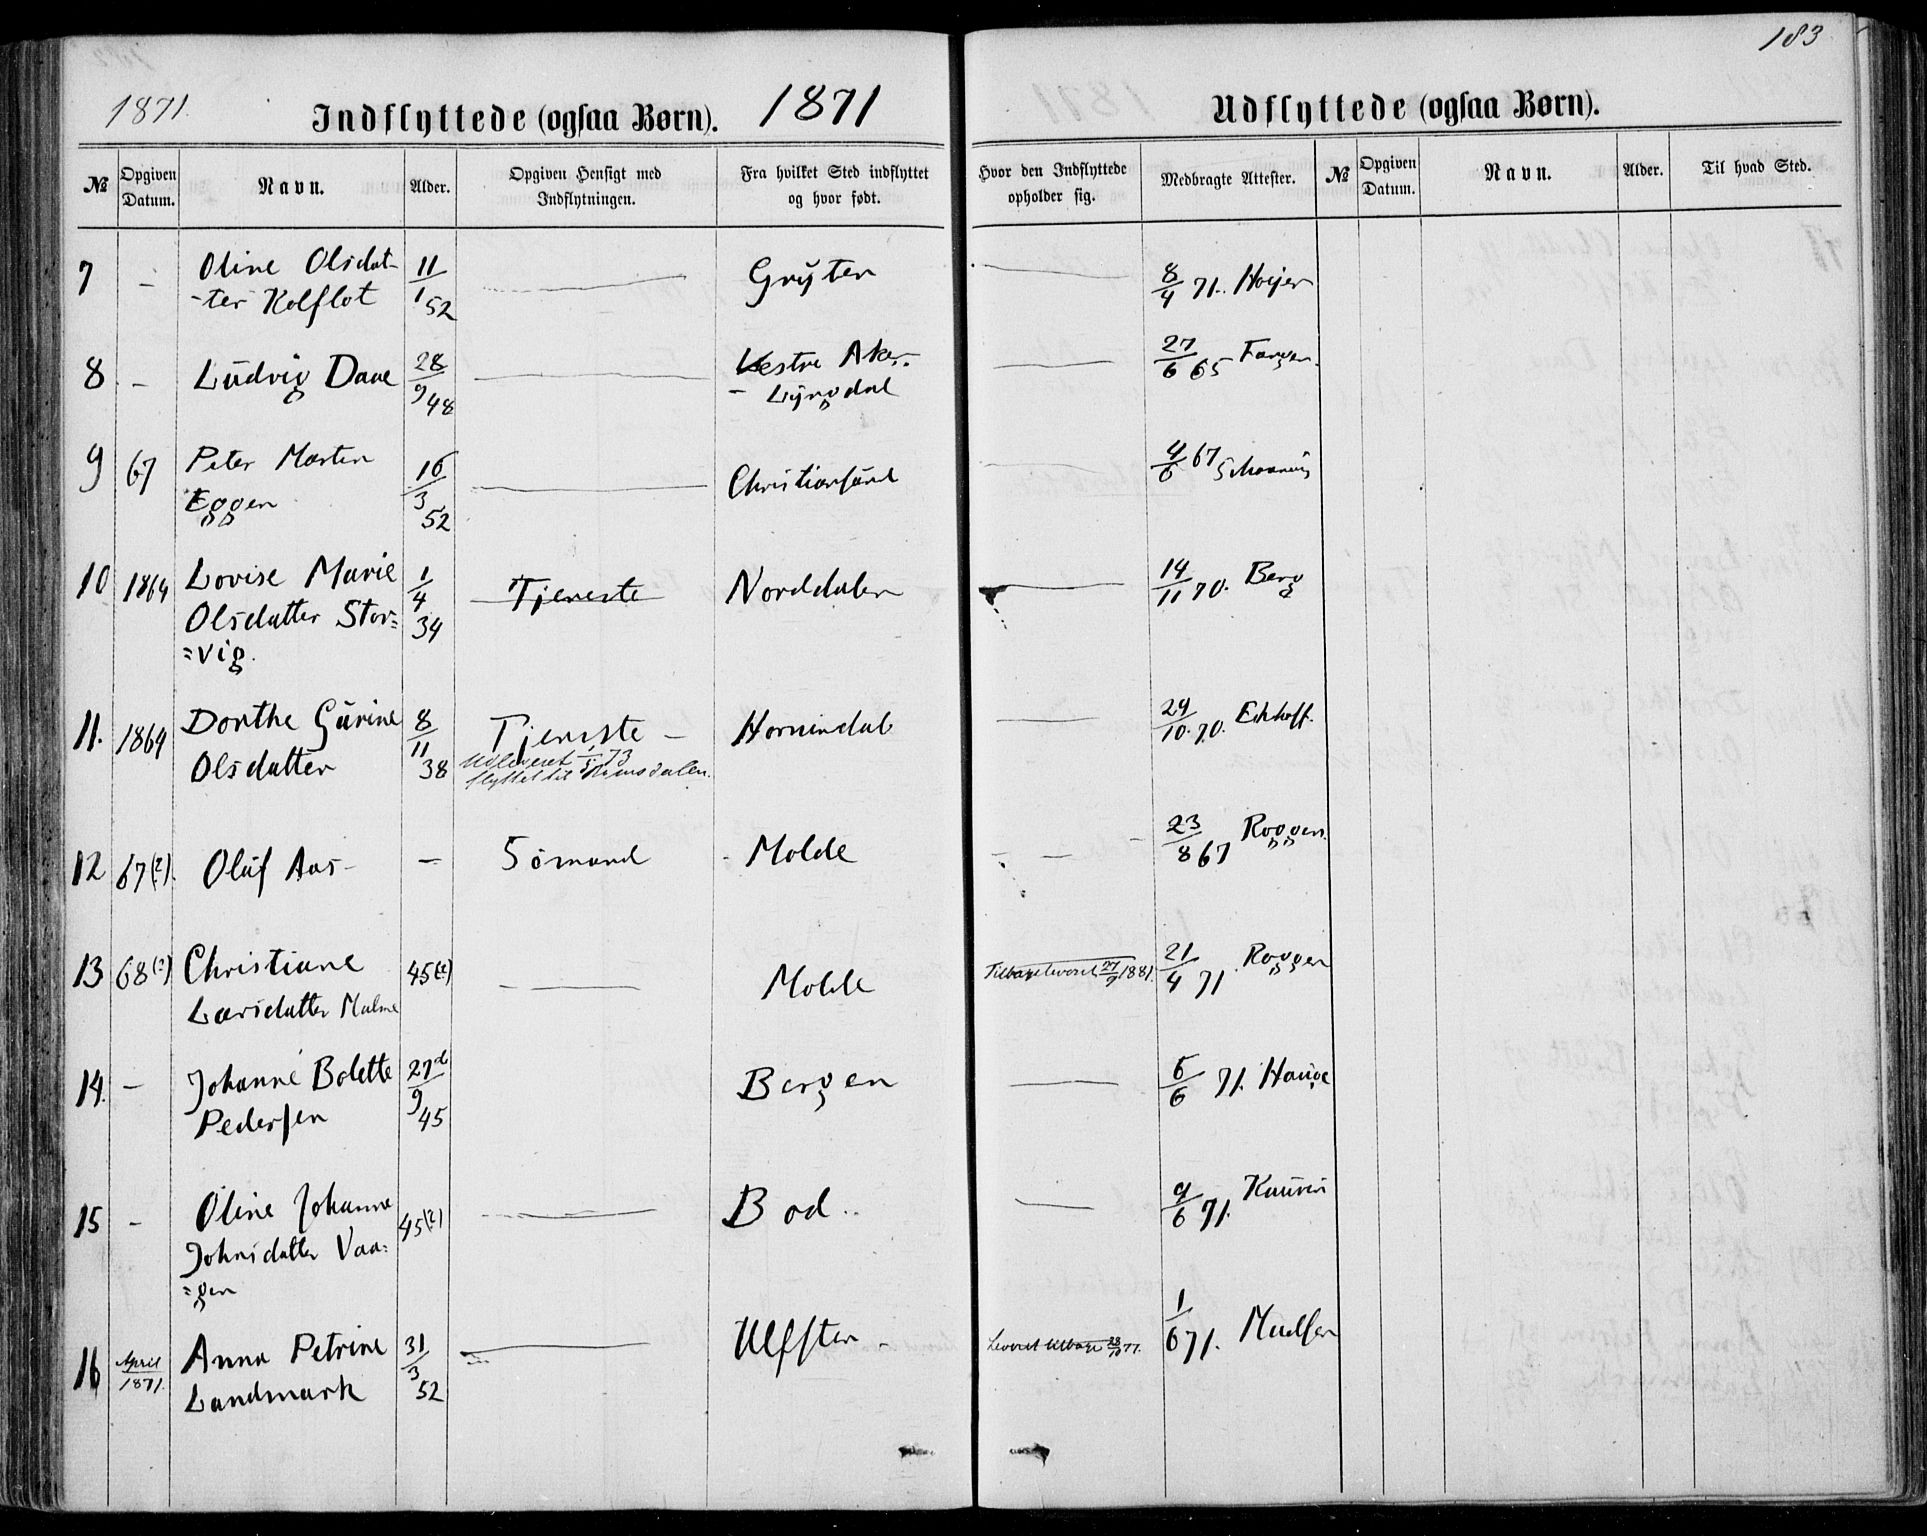 183
1871. Indflyttede (ogsaa Børn). 1871 Udflyttede (ogsaa Børn).
№ Opgiven Datum. Navn. Alder. Opgiven Hensigt med Indflytningen. Fra hvilket Sted indflyttet og hvor født. Hvor den Indflyttede opholder sig. Medbragte Attester. № Opgiven Datum. Navn. Alder. Til hvad Sted.
7 – Oline Olsdat- 11/1 52 Gryten 8/4 71. Høyer
-ter Kolflot
8. – Ludvig Daae 28/9 48 Vestre Aker. 27/6 65
– Lyngdal
9 67 Peter Morten 16/3 52 Christiansund 4/6 67
Eggen
10 1864 Lovise Marie 1/4 34 Tjeneste Norddalen 14/11 70. Berg
Olsdatter Stor=
=vig.
11. 1864 Dorthe Gurine 8/11 38 Tjeneste – Hornindal 29/10. 70. Eckhoff.
Olsdatter Udleveret 73
flyttet til Romsdalen.
12 67(?). Oluf Aas – – Sømand Molde 23/8 67 Roggen.
13 68(?) Christiane 45(?) Molde Tilbageleveret 27/9 1881. 21/4 71. Roggen
Larsdatter Malme
14. – Johanne Bolette 27d/9 45 Bergen 6/6 71. Hauge
Pedersen
15 – Oline Johanne 45(?) Bod. 9/6 71. Kaurin
Johnsdatter Vaa=
=gen
16 April/1871. Anna Petrine 31/3 52 Ulfsten – Leveret tilbage 28/10 77. 1/6 71. Madsen
Landmark